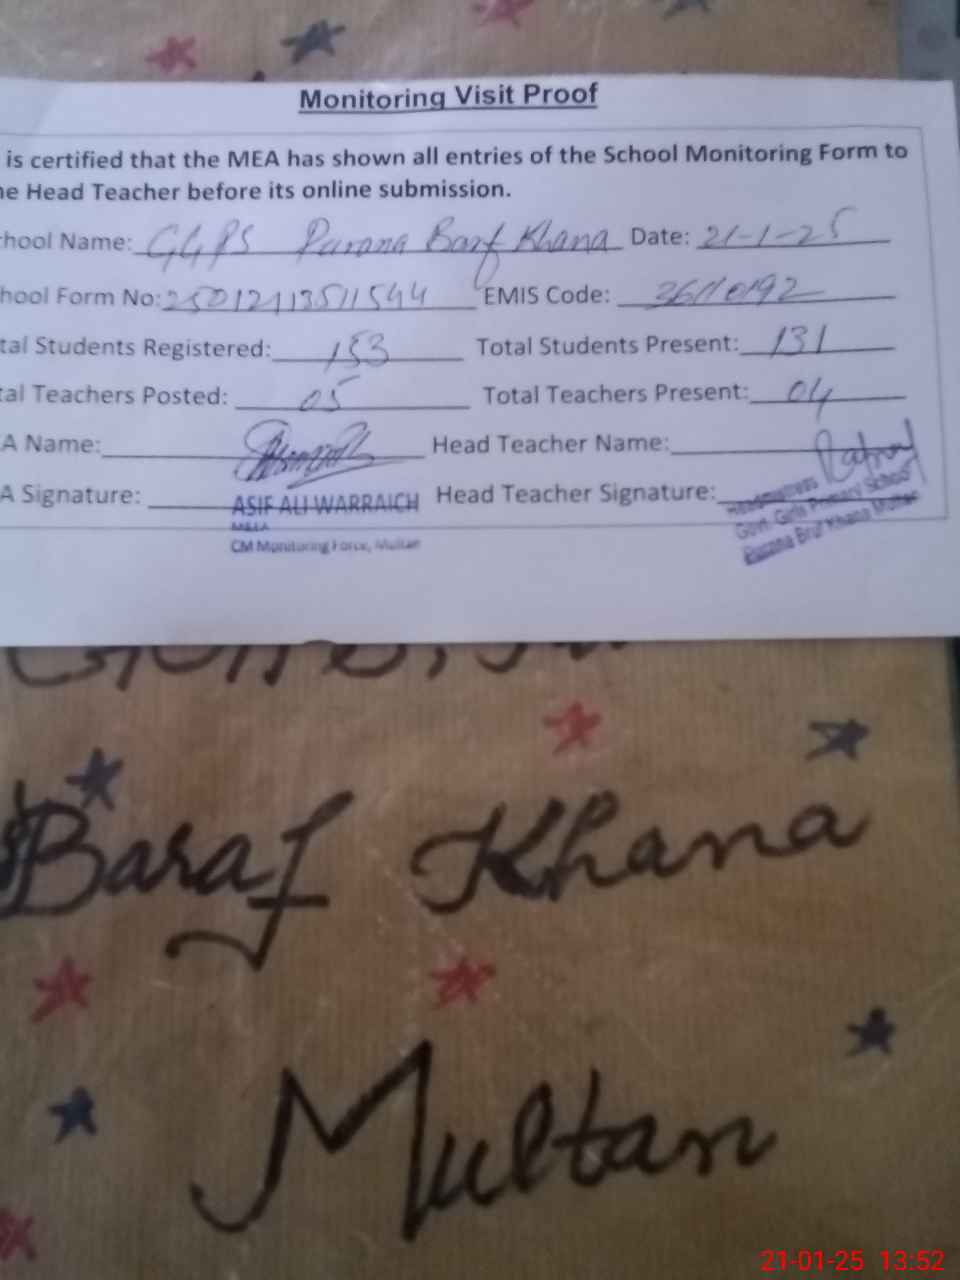 Monitoring Visit Proof
is certified that the MEA has shown all entries of the School Monitoring Form to
he Head Teacher before its online submission.
chool Name: GGPS Purana Barf Khana Date: 21-1-25
hool Form No: 25012113511544 EMIS Code: 36110192
tal Students Registered: 153 Total Students Present: 131
tal Teachers Posted: 05 Total Teachers Present: 04
A Name: Head Teacher Name:
A Signature: Head Teacher Signature:
ASIF ALI WARRAICH
MEA
CM Monitoring Force, Multan
Headmistress
Govt. Girls Primary School
Purana Brif Khana Multan
Baraf Khana
Multan
21-01-25 13:52